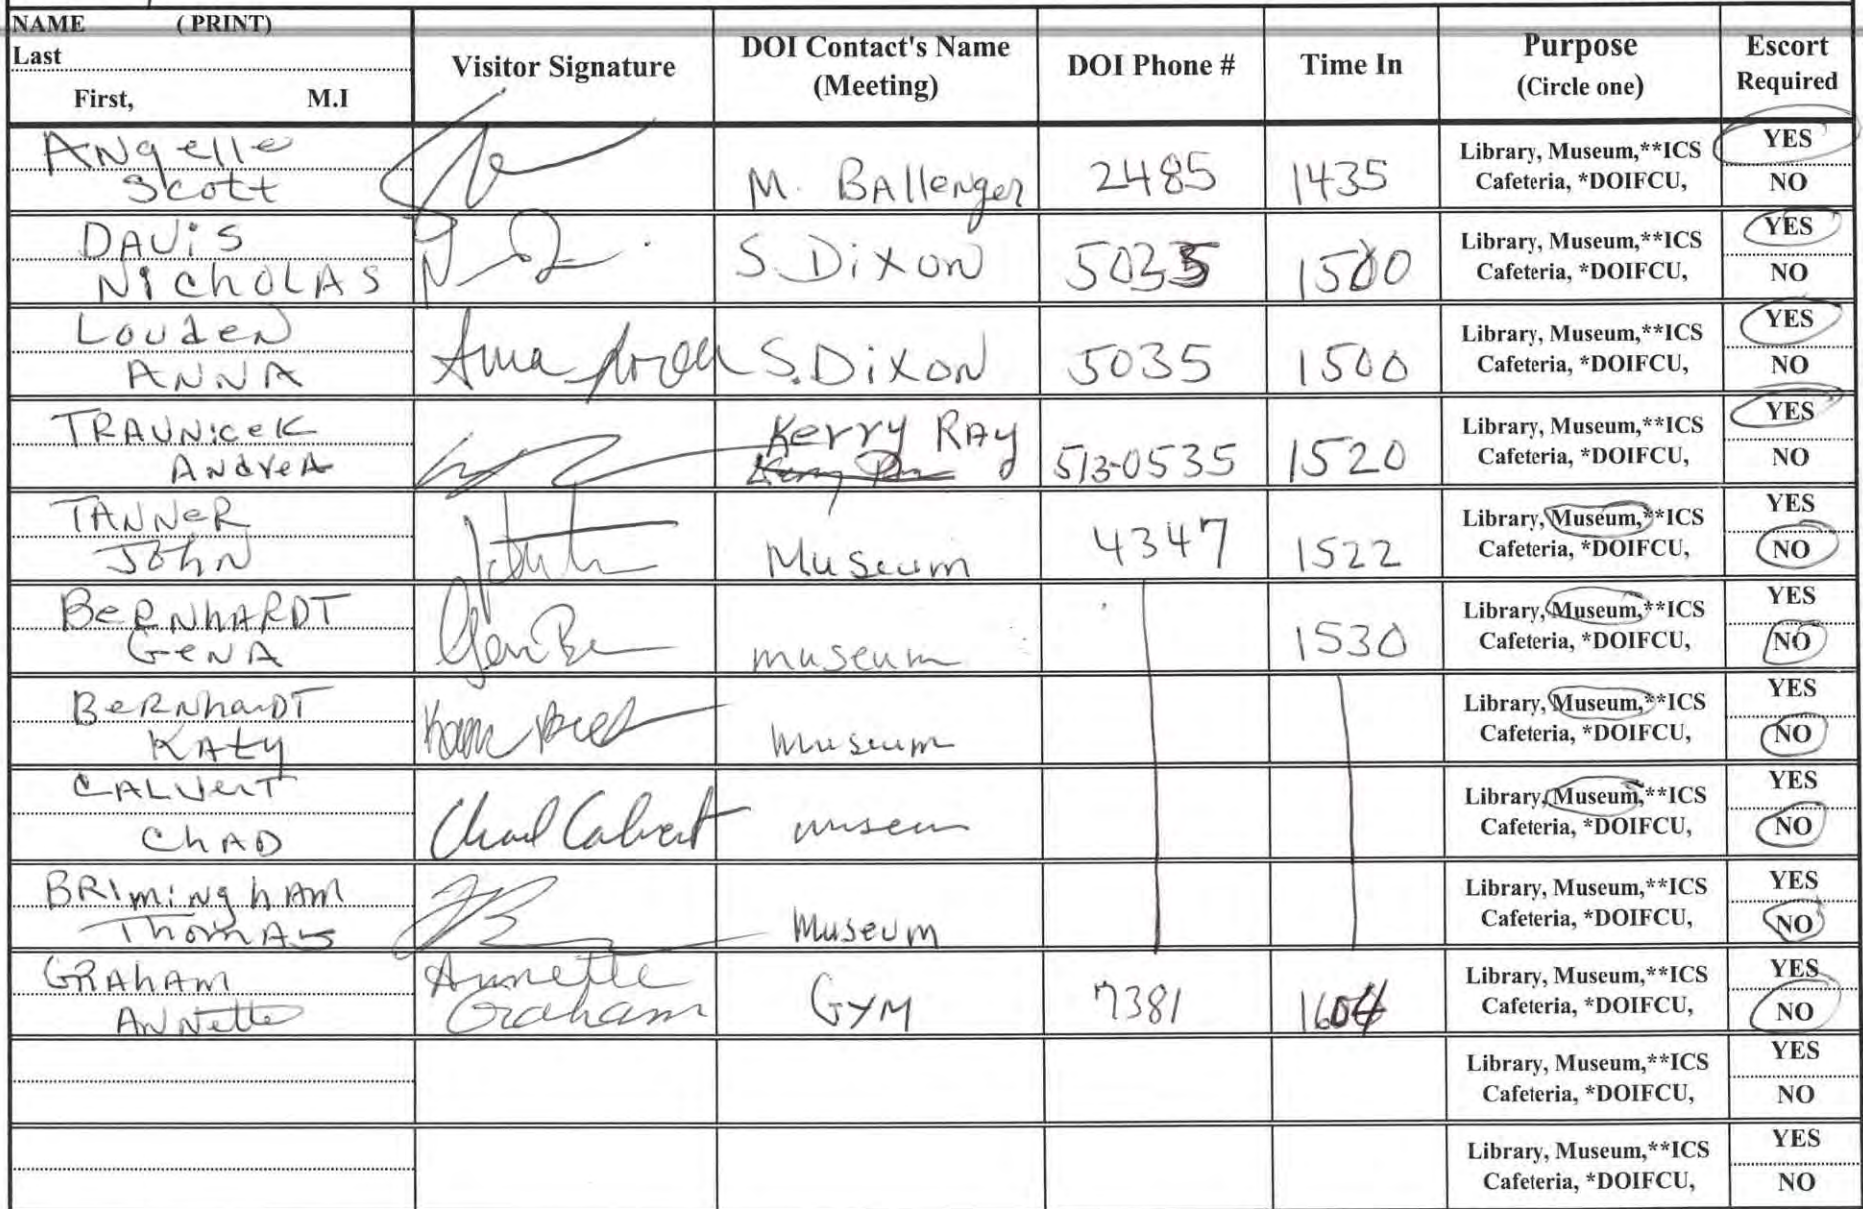 NAME (PRINT)
Last
First, M.I
Visitor Signature
DOI Contact's Name
(Meeting)
DOI Phone #
Time In
Purpose
(Circle one)
Escort
Required
ANgelle
Scott
M. BALlenger
2485
1435
Library, Museum,**ICS
Cafeteria, *DOIFCU,
YES
NO
DAViS
NIChOLAS
S. DiXON
5035
1500
Library, Museum,**ICS
Cafeteria, *DOIFCU,
YES
NO
LoudeN
ANNA
S. DiXON
5035
1500
Library, Museum,**ICS
Cafeteria, *DOIFCU,
YES
NO
TRAVNiceK
AndreA
Kerry RAy
513-0535
1520
Library, Museum,**ICS
Cafeteria, *DOIFCU,
YES
NO
TANNeR
JOhN
Museum
4347
1522
Library, Museum,**ICS
Cafeteria, *DOIFCU,
YES
NO
BeRNhARDT
GeNA
museum
1530
Library, Museum,**ICS
Cafeteria, *DOIFCU,
YES
NO
BeRNhaRDT
KAty
Museum
Library, Museum,**ICS
Cafeteria, *DOIFCU,
YES
NO
CALVerT
ChAD
Chad Calvert
museum
Library, Museum,**ICS
Cafeteria, *DOIFCU,
YES
NO
BRIminghAm
ThomAs
Museum
Library, Museum,**ICS
Cafeteria, *DOIFCU,
YES
NO
GRAhAm
ANNette
Annette
Graham
GYM
7381
1604
Library, Museum,**ICS
Cafeteria, *DOIFCU,
YES
NO
Library, Museum,**ICS
Cafeteria, *DOIFCU,
YES
NO
Library, Museum,**ICS
Cafeteria, *DOIFCU,
YES
NO